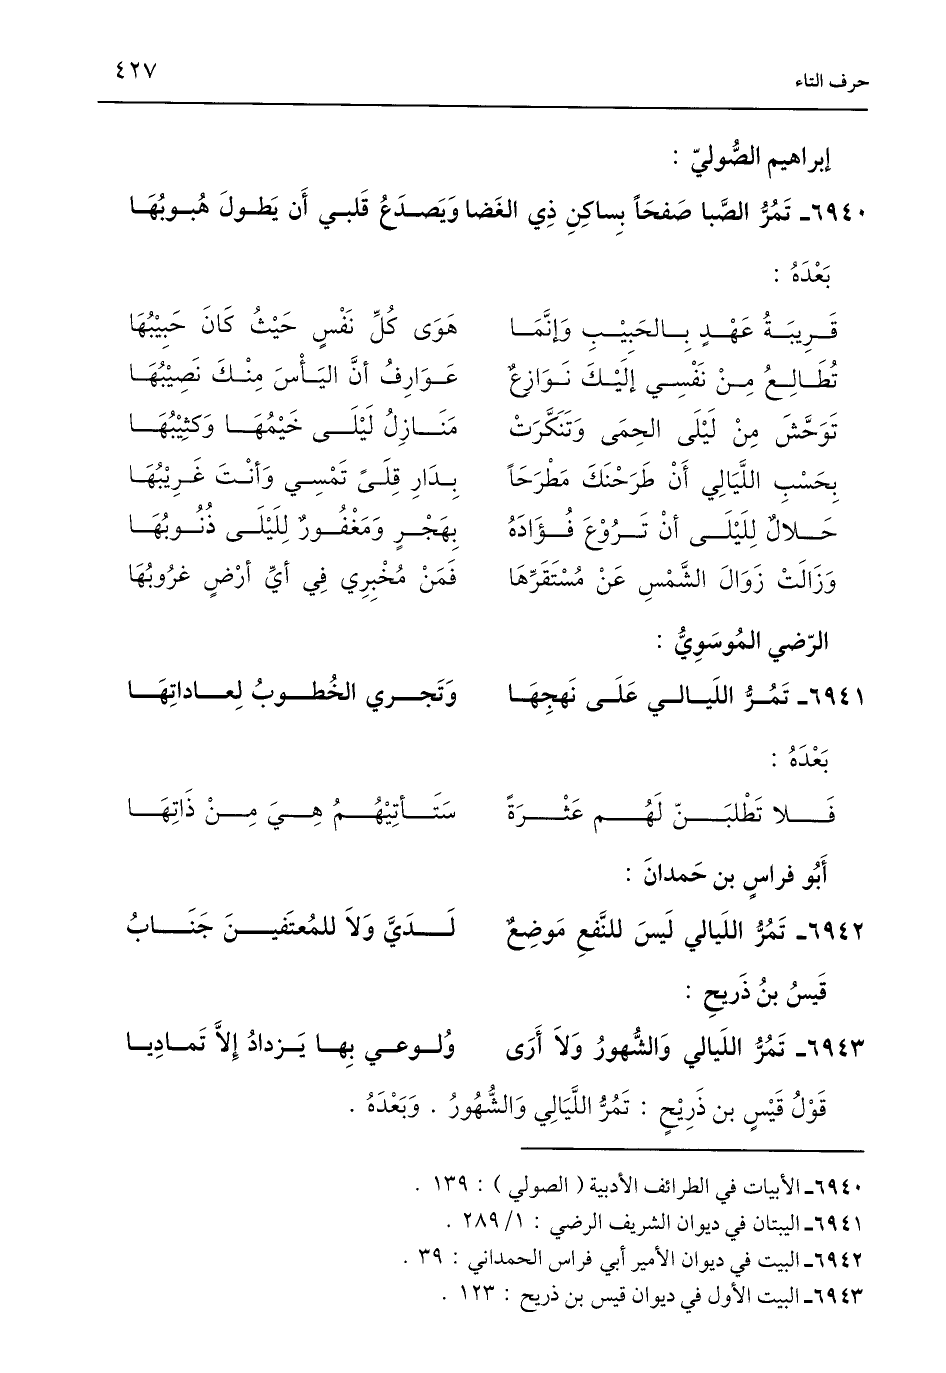 حرف التاء ٤٢٧
إبراهيم الصُّوليّ :
٦٩٤٠ـ تَمُرُّ الصَّبا صَفحَاً بِساكِنِ ذِي الغَضا وَيَصدَعُ قَلبي أَن يَطولَ هُبوبُهَا
بَعْدَهُ :
قَرِيبَةُ عَهْدٍ بِالحَبِيْبِ وَإنَّمَا هَوَى كُلِّ نَفْسٍ حَيْثُ كَانَ حَبِيْبُهَا
تُطَالِعُ مِنْ نَفْسِي إلَيْكَ نَوَازِعٌ عَوَارِفُ أنَّ اليَأْسَ مِنْكَ نَصِيْبُهَا
تَوَحَّشَ مِنْ لَيْلَى الحِمَى وَتَنَكَّرَتْ مَنَازِلُ لَيْلَى خَيْمُهَا وَكَثِيْبُهَا
بِحَسْبِ اللَّيَالِي أنْ طَرَحْنَكَ مَطْرَحَاً بِدَارِ قِلَىً تَمْسِي وَأنْتَ غَرِيْبُهَا
حَلالٌ لِلَيْلَى أنْ تَرُوْعَ فُؤَادَهُ بِهَجْرٍ وَمَغْفُورٌ لِلَيْلَى ذُنُوبُهَا
وَزَالَتْ زَوَالَ الشَّمْسِ عَنْ مُسْتَقَرِّهَا فَمَنْ مُخْبِرِي فِي أيِّ أرْضٍ غرُوبُهَا
الرّضي المُوسَوِيُّ :
٦٩٤١ـ تَمُرُّ اللَيالي عَلَى نَهجِهَا وَتَجري الخُطوبُ لِعاداتِهَا
بَعْدَهُ :
فَلا تَطْلبَنّ لَهُم عَثْرَةً سَتَأتِيْهُمُ هِيَ مِنْ ذَاتِهَا
أَبُو فراسٍ بن حَمدانَ :
٦٩٤٢ـ تَمُرُّ اللَيالي لَيسَ للنَّفعِ مَوضِعٌ لَدَيَّ وَلاَ للمُعتَفينَ جَنَابُ
قَيسُ بنُ ذَريحِ :
٦٩٤٣ـ تَمُرُّ اللَيالي وَالشُّهورُ وَلاَ أَرَى وُلوعي بِها يَزدادُ إِلاَّ تَماديا
قَوْلُ قَيْسٍ بن ذَرِيْحٍ : تَمُرُّ اللَّيَالِي وَالشُّهُورُ . وَبَعْدَهُ .
٦٩٤٠ـ الأبيات في الطرائف الأدبية ( الصولي ) : ١٣٩ .
٦٩٤١ـ البيتان في ديوان الشريف الرضي : ١/ ٢٨٩ .
٦٩٤٢ـ البيت في ديوان الأمير أبي فراس الحمداني : ٣٩ .
٦٩٤٣ـ البيت الأول في ديوان قيس بن ذريح : ١٢٣ .